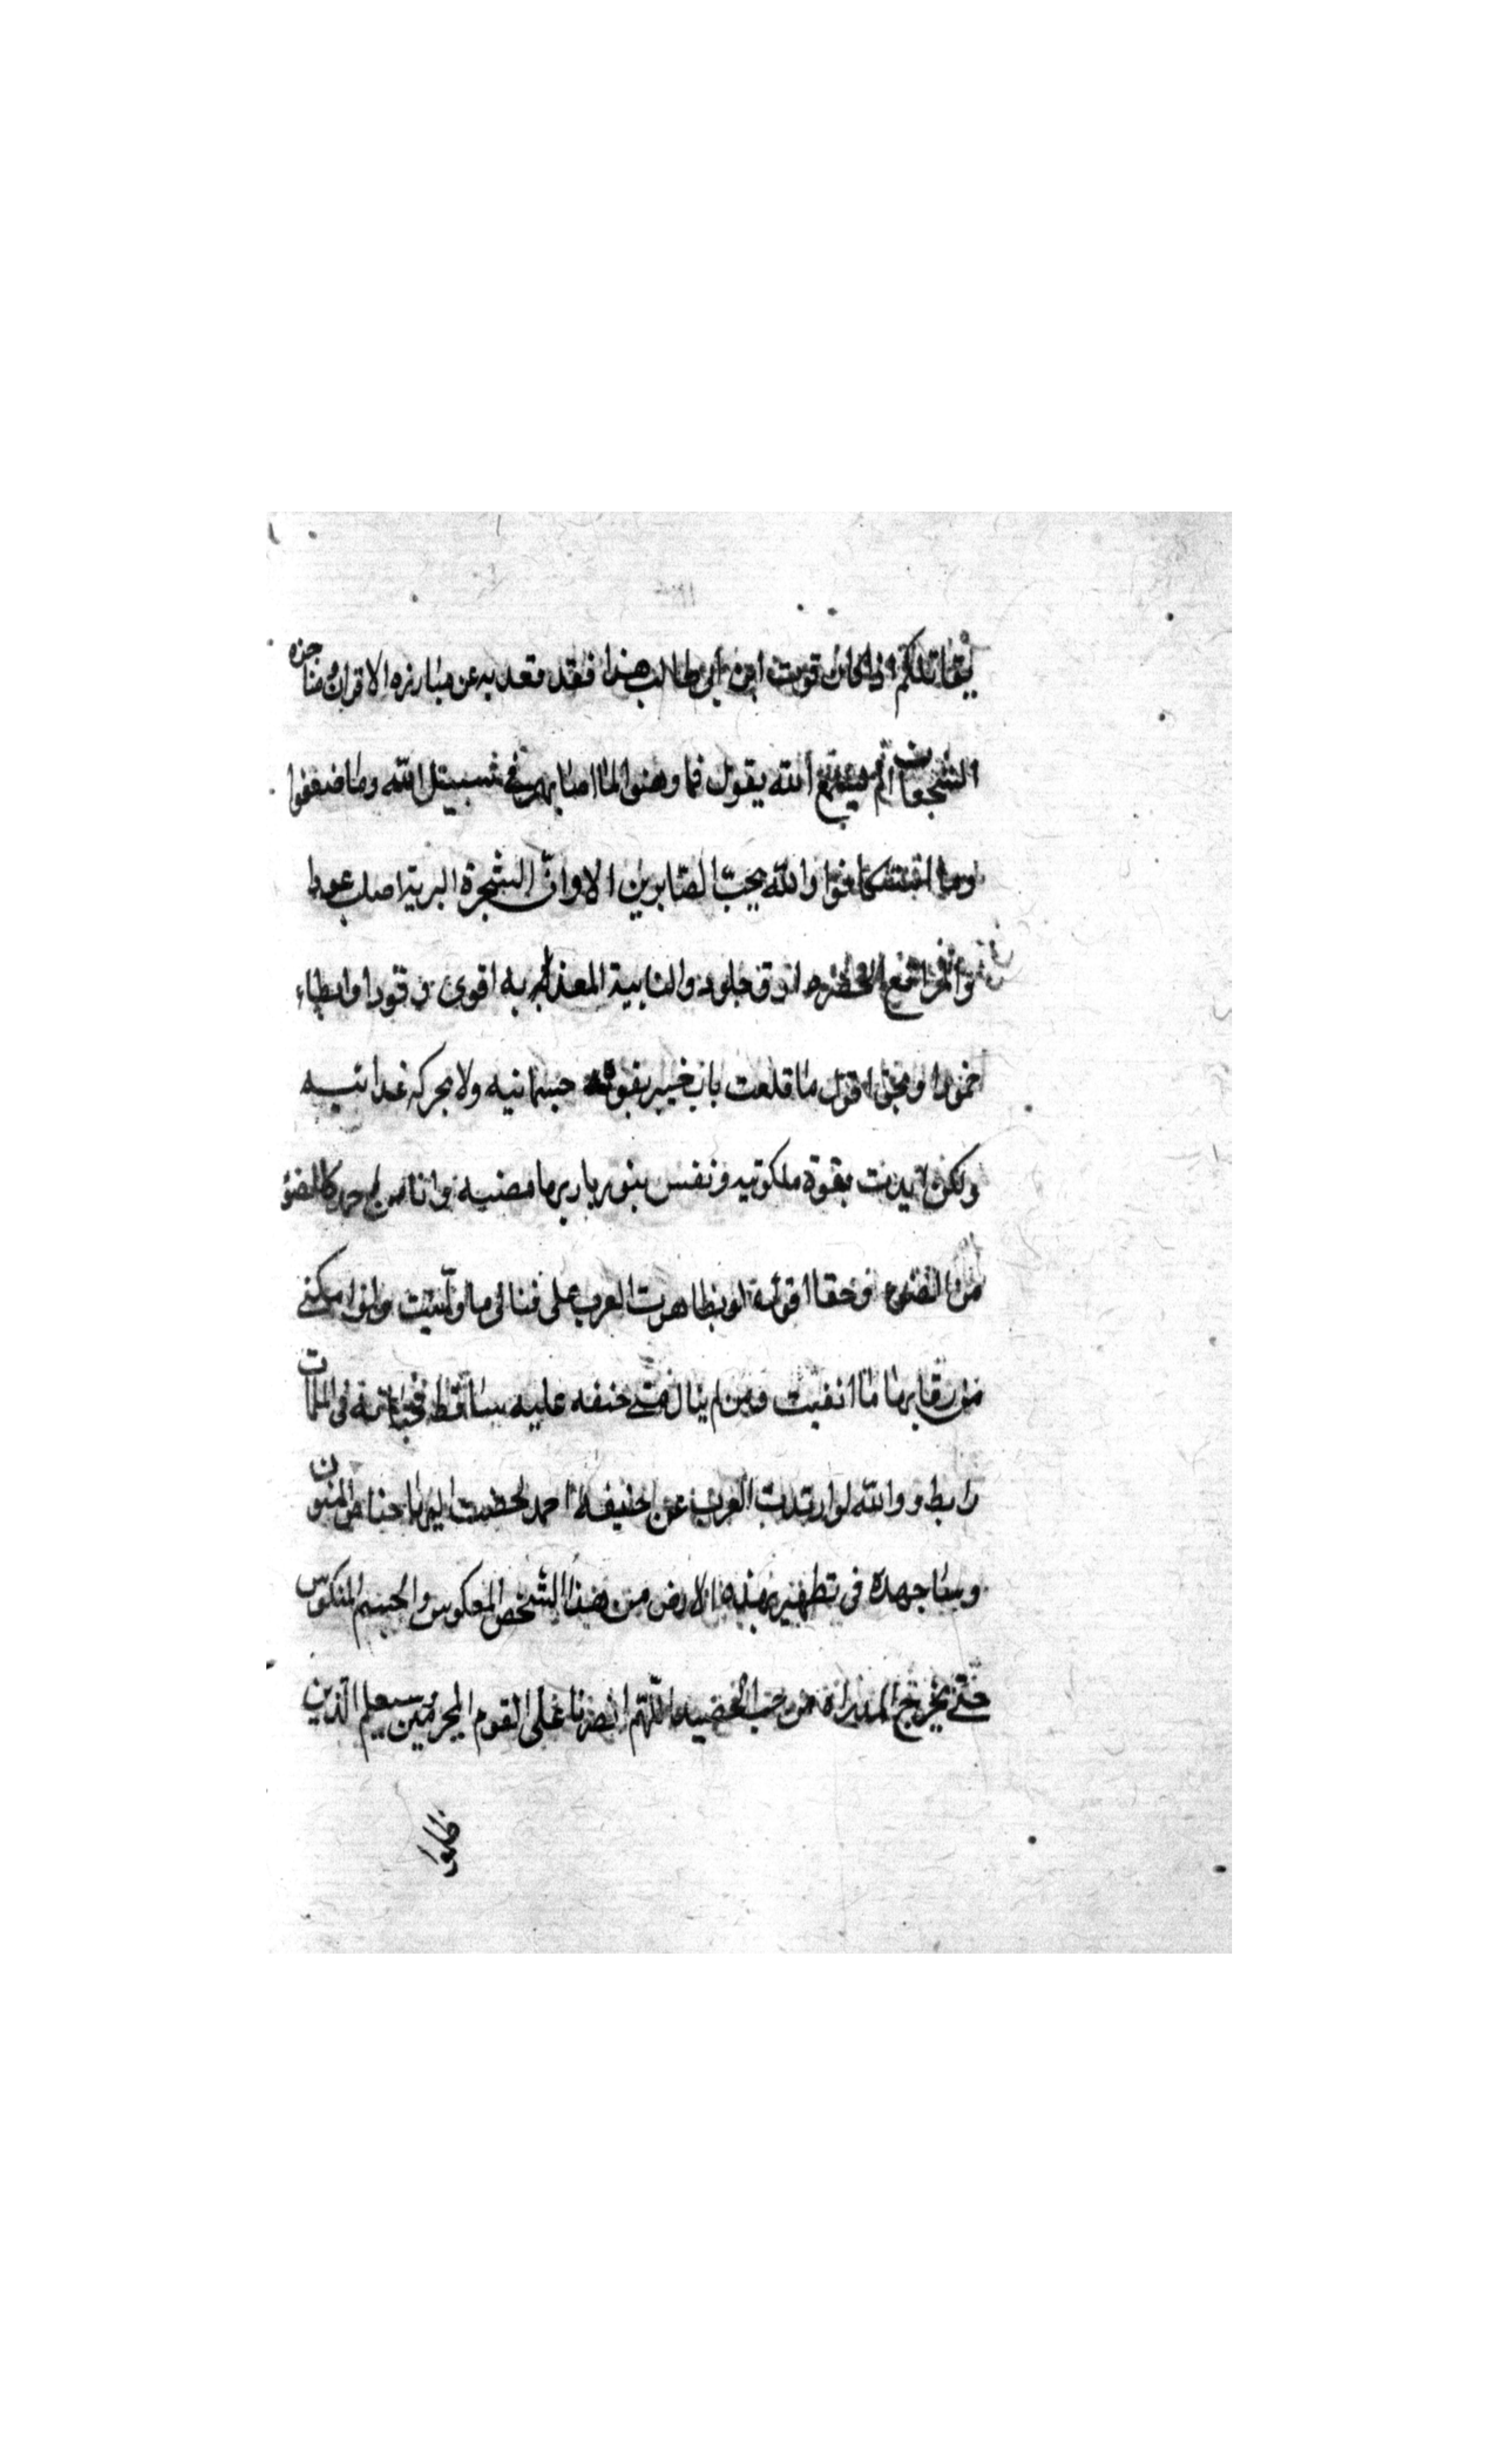 يقاتلكم اذا كان قوت ابن ابي طالب هذا فقد قعد به عن مبارزه الاقران ومناجزه
الشجعان الم يستمع الله يقول فما وهنوا لما اصابهم في سبيل الله وما ضعفوا
وما استكانوا والله يحبّ الصّابرين الا وانّ الشجرة البرية اصلب عودا
الخضره ارق جلودا والنابية العذبه اقوى وقودا وابطاء
خمودا وبحق اقول ما قلعت باب خيبر بقوة جسمانيه ولا بحركه غدائيه
ولكن ايدت بقوة ملكوتيه ونفس بنور بارئها مضيئه وانا من احمد كالضوء
من الضوء وحقا اقول لو تظاهرت العرب على قتالى ما وليت ولو امكنني
من رقابها ما انفيت ومن لم ينال متى حتفه عليه ساقط فجنانه في الملمات
رابط ووالله لو ارتدت العرب عن حنيفة احمد لخضت اليها حياض المنون
وساجهد في تطهير هذه الارض من هذا الشخص المعكوس والجسم المنكوس
حتى يخرج المدرة من حب الحصيد اللّهم انصرنا على القوم المجرمين وسيعلم الذين
ظلموا